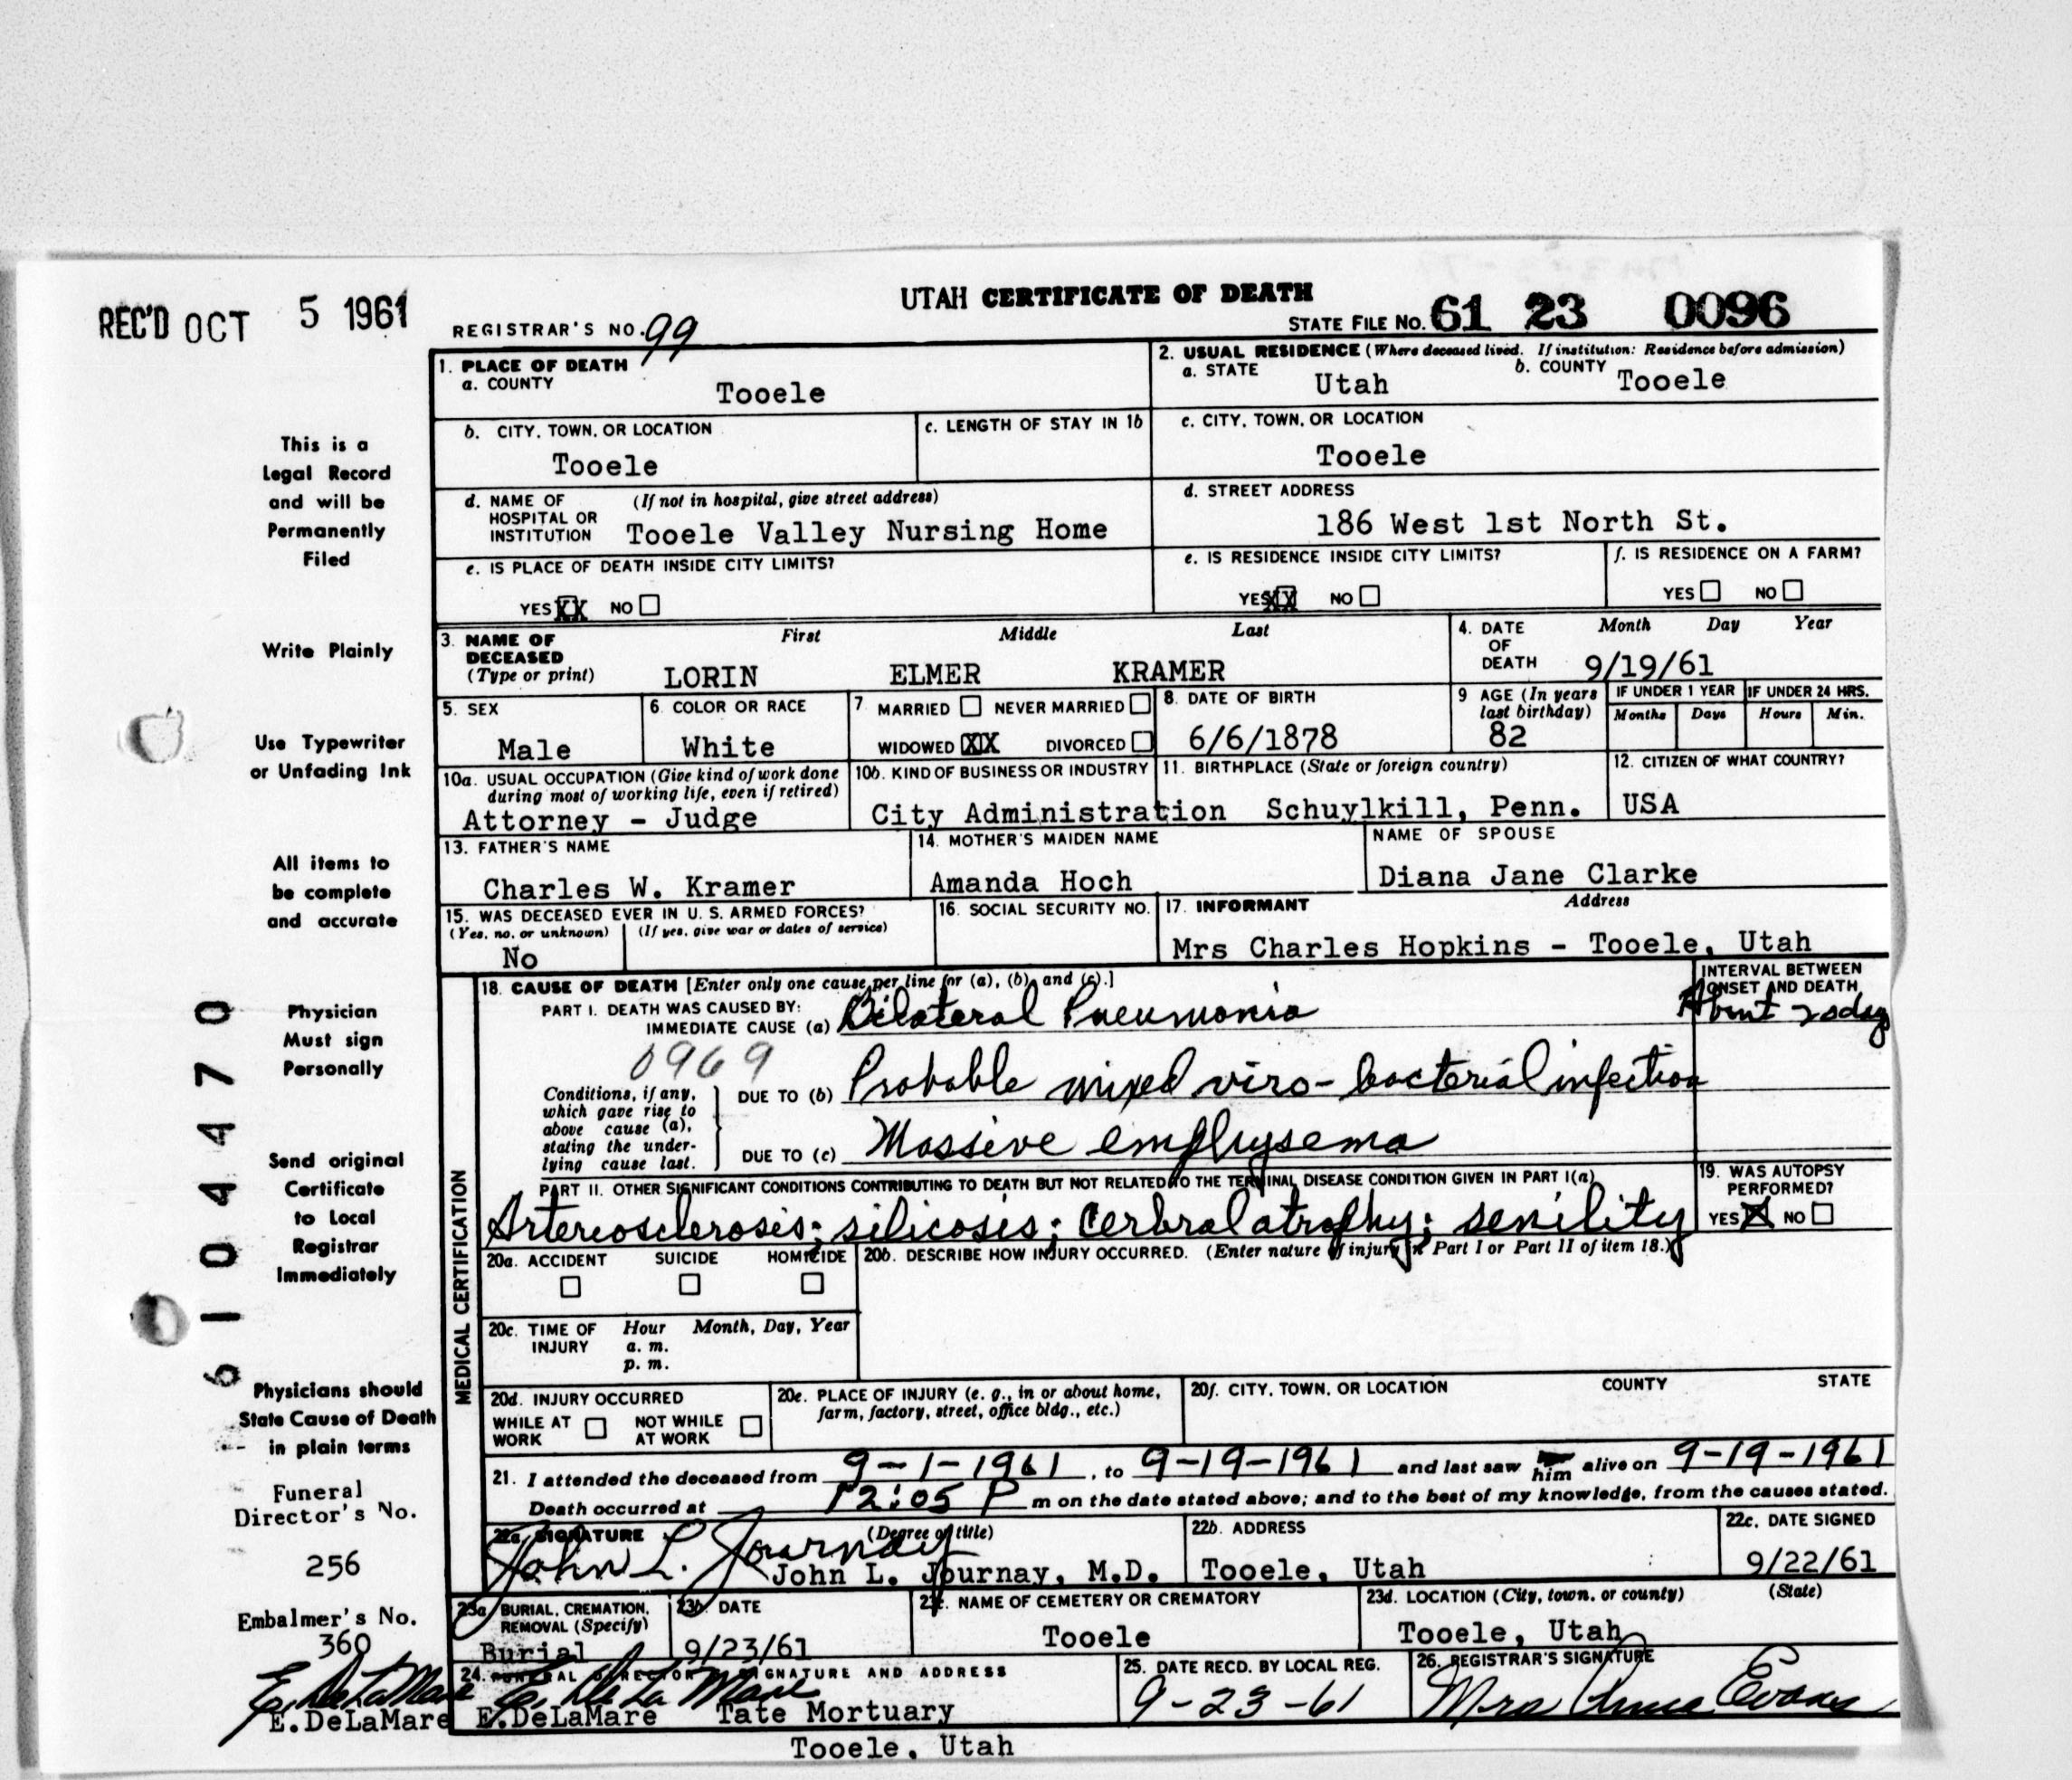 UTAH CERTIFICATE OF DEATH
REC'D OCT 5 1961
REGISTRAR'S NO. 99
STATE FILE No. 61 23 0096
1. PLACE OF DEATH
a. COUNTY
Tooele
2. USUAL RESIDENCE (Where deceased lived. If institution: Residence before admission)
a. STATE Utah b. COUNTY Tooele
b. CITY, TOWN, OR LOCATION
Tooele
c. LENGTH OF STAY IN 1b
c. CITY, TOWN, OR LOCATION
Tooele
d. NAME OF HOSPITAL OR INSTITUTION (If not in hospital, give street address)
Tooele Valley Nursing Home
d. STREET ADDRESS
186 West 1st North St.
e. IS PLACE OF DEATH INSIDE CITY LIMITS?
YES XX NO
e. IS RESIDENCE INSIDE CITY LIMITS?
YES XX NO
f. IS RESIDENCE ON A FARM?
YES NO
3. NAME OF DECEASED (Type or print)
First Middle Last
LORIN ELMER KRAMER
4. DATE OF DEATH
Month Day Year
9/19/61
5. SEX
Male
6. COLOR OR RACE
White
7. MARRIED NEVER MARRIED
WIDOWED XX DIVORCED
8. DATE OF BIRTH
6/6/1878
9 AGE (In years last birthday)
82
IF UNDER 1 YEAR
Months Days
IF UNDER 24 HRS.
Hours Min.
10a. USUAL OCCUPATION (Give kind of work done during most of working life, even if retired)
Attorney - Judge
10b. KIND OF BUSINESS OR INDUSTRY
City Administration
11. BIRTHPLACE (State or foreign country)
Schuylkill, Penn.
12. CITIZEN OF WHAT COUNTRY?
USA
13. FATHER'S NAME
Charles W. Kramer
14. MOTHER'S MAIDEN NAME
Amanda Hoch
NAME OF SPOUSE
Diana Jane Clarke
15. WAS DECEASED EVER IN U. S. ARMED FORCES?
(Yes, no, or unknown) (If yes, give war or dates of service)
No
16. SOCIAL SECURITY NO.
17. INFORMANT Address
Mrs Charles Hopkins - Tooele, Utah
MEDICAL CERTIFICATION
18. CAUSE OF DEATH [Enter only one cause per line for (a), (b), and (c).]
INTERVAL BETWEEN ONSET AND DEATH
PART I. DEATH WAS CAUSED BY:
IMMEDIATE CAUSE (a) Bilateral Pneumonia
About
0969
Conditions, if any, which gave rise to above cause (a), stating the underlying cause last.
DUE TO (b) Probable mixed viro-bacterial infection
DUE TO (c) Massive emphysema
PART II. OTHER SIGNIFICANT CONDITIONS CONTRIBUTING TO DEATH BUT NOT RELATED TO THE TERMINAL DISEASE CONDITION GIVEN IN PART I(a)
Artereosclerosis; silicosis; Cerbral atrophy; senility
19. WAS AUTOPSY PERFORMED?
YES X NO
20a. ACCIDENT SUICIDE HOMICIDE
20b. DESCRIBE HOW INJURY OCCURRED. (Enter nature of injury in Part I or Part II of item 18.)
20c. TIME OF INJURY
Hour Month, Day, Year
a. m.
p. m.
20d. INJURY OCCURRED
WHILE AT WORK NOT WHILE AT WORK
20e. PLACE OF INJURY (e. g., in or about home, farm, factory, street, office bldg., etc.)
20f. CITY, TOWN, OR LOCATION COUNTY STATE
21. I attended the deceased from 9-1-1961, to 9-19-1961 and last saw him alive on 9-19-1961
Death occurred at 12:05 P m on the date stated above; and to the best of my knowledge, from the causes stated.
22a. SIGNATURE (Degree or title)
John L. Journay
John L. Journay, M.D.
22b. ADDRESS
Tooele, Utah
22c. DATE SIGNED
9/22/61
23a BURIAL, CREMATION, REMOVAL (Specify)
Burial
23b. DATE
9/23/61
23c. NAME OF CEMETERY OR CREMATORY
Tooele
23d. LOCATION (City, town, or county) (State)
Tooele, Utah
24. FUNERAL DIRECTOR'S SIGNATURE AND ADDRESS
E. DeLaMare
E.DeLaMare Tate Mortuary
Tooele, Utah
25. DATE RECD. BY LOCAL REG.
9-23-61
26. REGISTRAR'S SIGNATURE
Mrs Evans
This is a
Legal Record
and will be
Permanently
Filed
Write Plainly
Use Typewriter
or Unfading Ink
All items to
be complete
and accurate
Physician
Must sign
Personally
Send original
Certificate
to Local
Registrar
Immediately
Physicians should
State Cause of Death
in plain terms
Funeral
Director's No.
256
Embalmer's No.
360
E. DeLaMare
E.DeLaMare
6104470